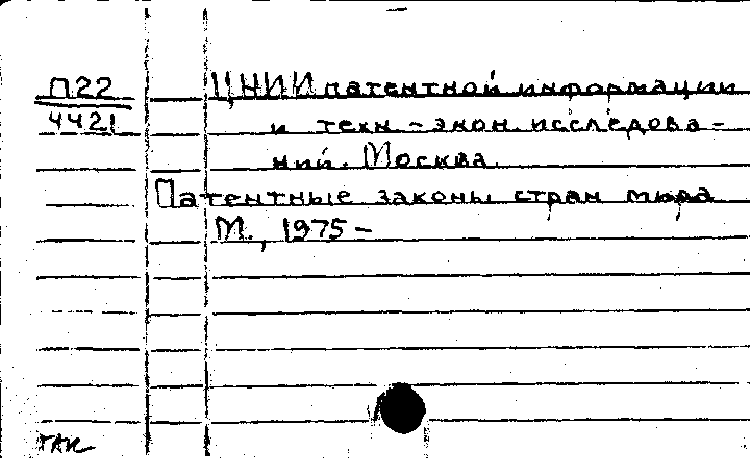 П22
4421
ЦНИИ патентной информации
и техн.-экон. исследова-
ний. Москва.
Патентные законы стран мира
М., 1975 –